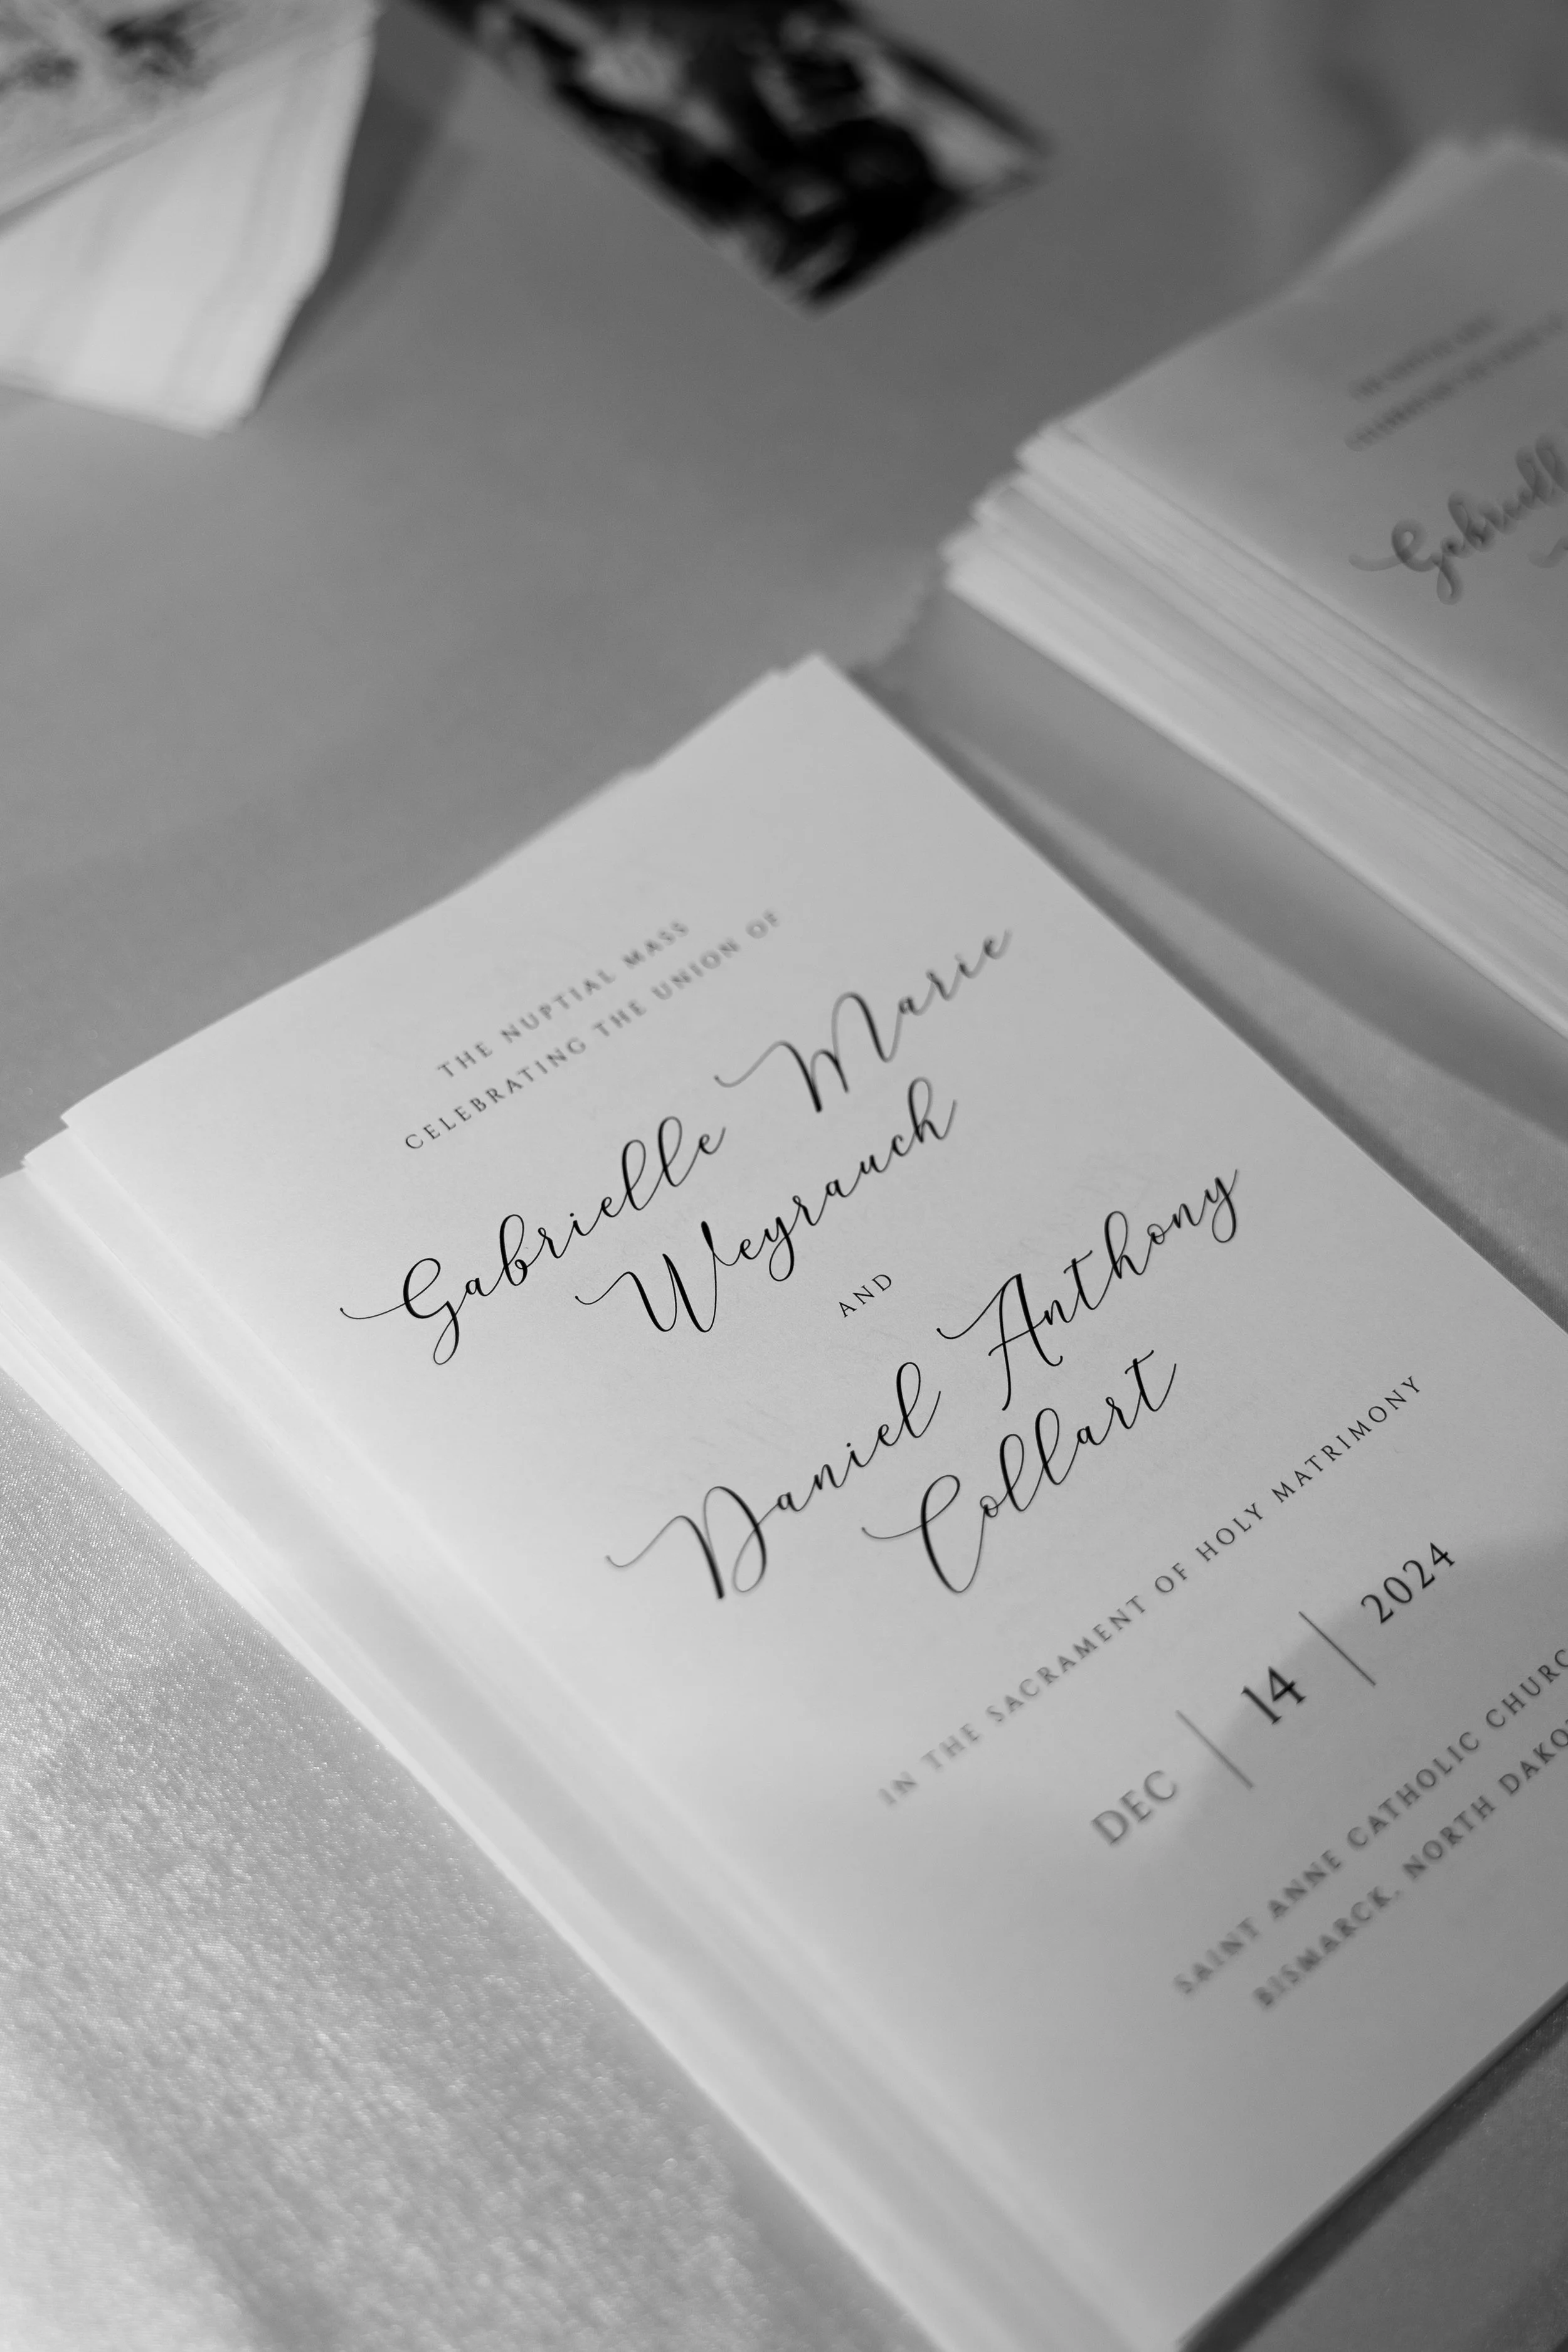 THE NUPTIAL MASS
CELEBRATING THE UNION OF
Gabrielle Marie
Weyrauch
AND
Daniel Anthony
Collart
IN THE SACRAMENT OF HOLY MATRIMONY
DEC | 14 | 2024
SAINT ANNE CATHOLIC CHURC
BISMARCK, NORTH DAKO
Gabriell